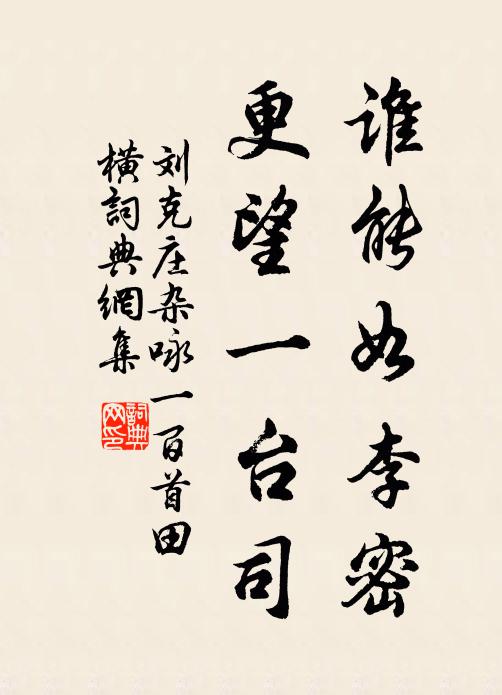 谁能如李密
更望一台司
刘克庄杂咏一百首田
横詞典網集
詞典网印